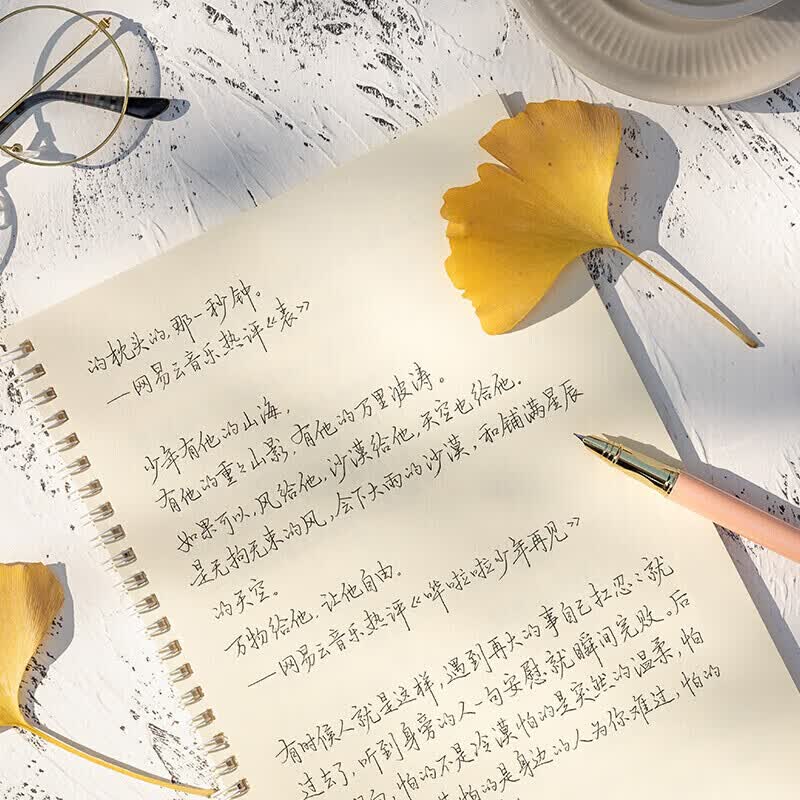 的枕头的,那一秒钟。
—网易云音乐热评《表》
少年有他的山海,
有他的重々山影,有他的万里波涛。
如果可以,风给他,沙漠给他,天空也给他.
是无拘无束的风,会下大雨的沙漠,和铺满星辰
的天空。
万物给他,让他自由.
—网易云音乐热评《哗啦啦少年再见》
有时候人就是这样,遇到再大的事自己扛忍忍就
过去了,听到身旁的人一句安慰就瞬间完败。后
怕的不是冷漠怕的是突然的温柔,怕
怕的是身边的人为你难过,怕的